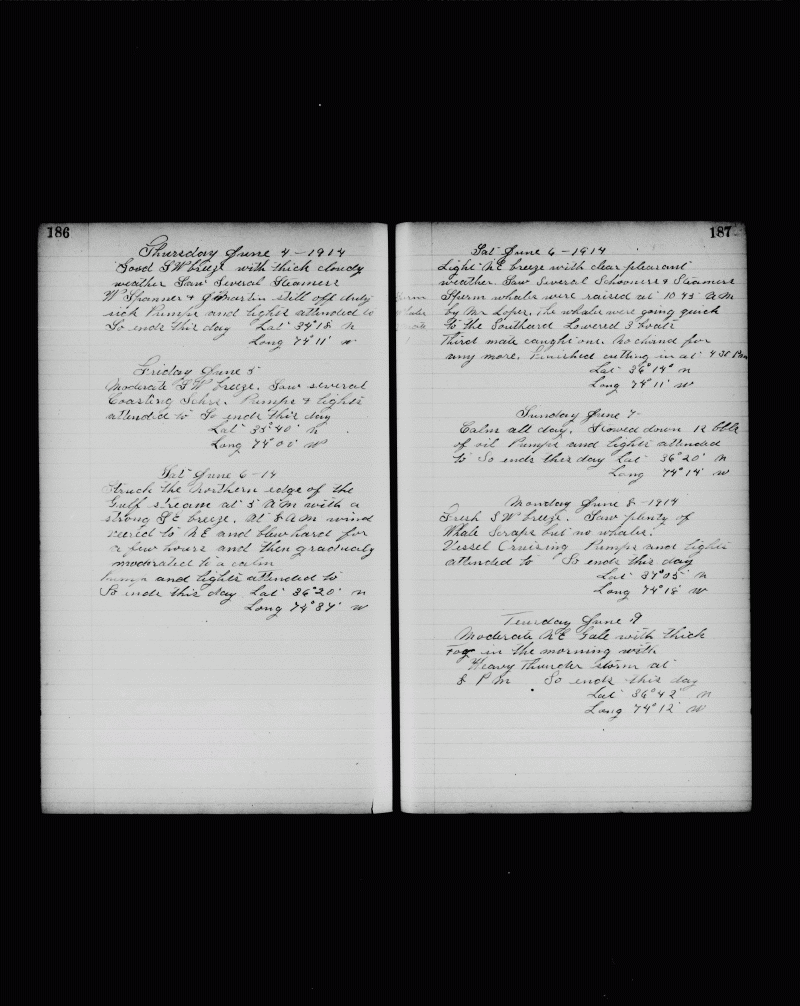 186
Thursday June 4 - 1914
Good SW breeze with thick cloudy
weather Saw Several Steamers
W Spanner & J Martin still off duty
sick Pumps and lights attended to
So ends this day Lat 34° 18' N
Long 74° 11' W
Friday June 5
Moderate SW breeze. Saw several
Coasting Schrs. Pumps & lights
attended to So ends this day
Lat 35° 40' N
Long 74° 00' W
Sat June 6 - 14
Struck the northern edge of the
Gulf stream at 5 AM with a
strong SE breeze. At 8 AM wind
veered to NE and blew hard for
a few hours and then gradually
moderated to a calm
and lights attended to
So ends this day Lat 36° 20' N
Long 74° 34' W
187
Sat June 6 - 1914
Light NE breeze with clear pleasant
weather. Saw Several Schooners & Steamers
Sperm whales were raised at 10 45 AM
by Mr Loper, the whales were going quick
to the Southard Lowered 3 boats
Third mate caught one. No chance for
any more. Finished cutting in at 4 30 PM
Lat 36° 14' N
Long 74° 11' W
Sunday June 7
Calm all day. Stowed down 12 bbls
of oil Pumps and lights attended
to So ends this day Lat 36° 20' N
Long 74° 14' W
Monday June 8 - 1914
Fresh SW breeze. Saw plenty of
Whale Scraps but no whales.
Vessel Cruising Pumps and lights
attended to So ends this day
Lat 37° 05' N
Long 74° 18' W
Tuesday June 9
Moderate NE Gale with thick
Fog in the morning with
Heavy thunder storm at
8 P M So ends this day
Lat 36° 42' N
Long 74° 12' W